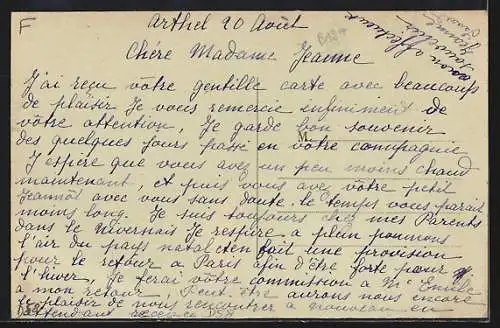 F
Arthel 20 Août
Chère Madame Jeanne
J'ai reçu vôtre gentille carte avec beaucoup
de plaisir Je vous remercie infiniment de
vôtre attention, Je garde bon souvenir
des quelques jours passé en vôtre compagnie
J'espère que vous avez un peu moins chaud
maintenant, et puis vous avez vôtre petit
Jeannot avec vous sans doute. le temps vous parait
moins long. Je suis toujours chez mes Parents
dans le Nivernais Je respire a plein poumons
l'air du pays natal et en fait une provision
pour le retour a Paris afin d'être forte pour
l'hiver, Je ferai vôtre commission a Me Emile
a mon retour, Peut être aurons nous encore
le plaisir de nous rencontrer a nouveau en
attendant recevez
affectueux
Jeanne